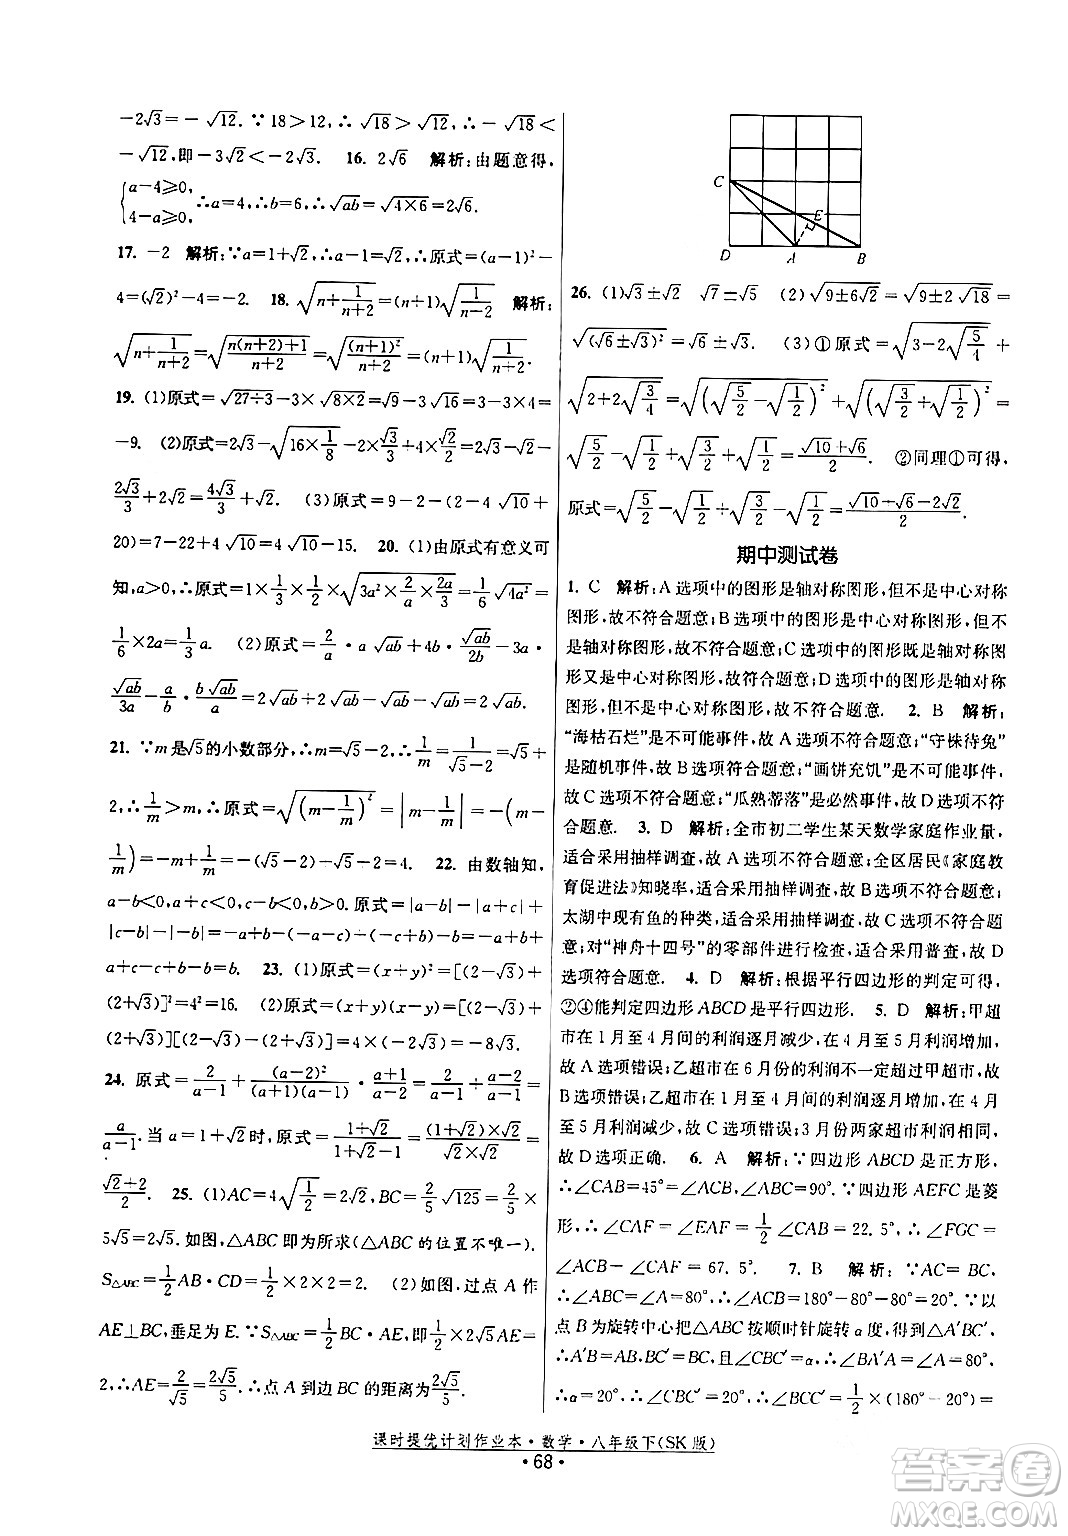 −2√3=−√12. ∵18>12,∴√18>√12,∴−√18<
−√12,即−3√2<−2√3.  16. 2√6  解析:由题意得,
{a−4≥0, 4−a≥0, ∴a=4,∴b=6,∴√ab=√(4×6)=2√6.
17. −2  解析:∵a=1+√2,∴a−1=√2,∴原式=(a−1)²−
4=(√2)²−4=−2.  18. √(n+1/(n+2))=(n+1)√(1/(n−2))  解析:
√(n+1/(n+2))=√((n(n+2)+1)/(n+2))=√((n+1)²/(n+2))=(n+1)√(1/(n+2)).
19. (1)原式=√(27÷3)−3×√(8×2)=√9−3√16=3−3×4=
−9.  (2)原式=2√3−√(16×1/8)−2×√3/3+4×√2/2=2√3−√2−
2√3/3+2√2=4√3/3+√2.  (3)原式=9−2−(2−4√10+
20)=7−22+4√10=4√10−15.  20. (1)由原式有意义可
知,a>0.原式=1×1/2×1/3×√(3×2/a×2a/3×a²)=
1/6×2a=1/3a.  (2)原式=2/a·a√ab+4b·√ab/2b−3a·
√ab/3a−a/b·b√ab/a=2√ab+2√ab−√ab−√ab=2√ab.
21. ∵m是√5的小数部分,∴m=√5−2,∴1/m=1/(√5−2)=√5+
2,∴1/m>m,∴原式=√((m−1/m)²)=|m−1/m|=−(m−
1/m)=−m+1/m=−(√5−2)+√5+2=4.  22. 由数轴知,
a−b<0,a+c<0,c−b<0.原式=|a−b|−|a+c|+
|c−b|−|−b|=−(a−b)+(a+c)−(c−b)+b=−a+b+
a+c−c+b+b=3b.  23. (1)原式=(x+y)²=[(2−√3)+
(2+√3)]²=4²=16.  (2)原式=(x+y)(x−y)=[(2−√3)+
(2+√3)][(2−√3)−(2+√3)]=4×(−2√3)=−8√3.
24. 原式=2/(a−1)+(a−2)²/((a+1)(a−1))·(a+1)/(a−2)=2/(a−1)+(a−2)/(a−1)=
a/(a−1).当a=1+√2时,原式=(1+√2)/(1+√2−1)=((1+√2)×√2)/(√2×√2)=
(√2+2)/2.  25. (1)AC=4√(1/2)=2√2,BC=2/5√125=2/5×
5√5=2√5.如图,△ABC即为所求(△ABC的位置不唯一).
S△ABC=1/2AB·CD=1/2×2×2=2.  (2)如图,过点A作
AE⊥BC,垂足为E.∵S△ABC=1/2BC·AE=1/2×2√5AE=
2,∴AE=2/√5=2√5/5.∴点A到边BC的距离为2√5/5.
C
E
D A B
26. (1)√3±√2  √7±√5  (2)√(9±6√2)=√(9±2√18)=
√((√6±√3)²)=√6±√3.  (3)①原式=√(3−2√(5/4))+
√(2+2√(3/4))=√((√(5/2)−√(1/2))²)+√((√(3/2)+√(1/2))²)=
√(5/2)−√(1/2)+√(3/2)+√(1/2)=(√10+√6)/2.  ②同理①可得,
原式=√(5/2)−√(1/2)+√(3/2)−√(1/2)=(√10+√6−2√2)/2.
期中测试卷
1. C  解析:A选项中的图形是轴对称图形,但不是中心对称
图形,故不符合题意;B选项中的图形是中心对称图形,但不
是轴对称图形,故不符合题意;C选项中的图形既是轴对称图
形又是中心对称图形,故符合题意;D选项中的图形是轴对称
图形,但不是中心对称图形,故不符合题意.  2. B  解析:
“海枯石烂”是不可能事件,故A选项不符合题意;“守株待兔”
是随机事件,故B选项符合题意;“画饼充饥”是不可能事件,
故C选项不符合题意;“瓜熟蒂落”是必然事件,故D选项不
符合题意.  3. D  解析:全市初二学生某天数学家庭作业量,
适合采用抽样调查,故A选项不符合题意;全区居民《家庭教
育促进法》知晓率,适合采用抽样调查,故B选项不符合题意;
太湖中现有鱼的种类,适合采用抽样调查,故C选项不符合题
意;对“神舟十四号”的零部件进行检查,适合采用普查,故D
选项符合题意.  4. D  解析:根据平行四边形的判定可得,
②④能判定四边形ABCD是平行四边形.  5. D  解析:甲超
市在1月至4月间的利润逐月减少,在4月至6月利润增加,
故A选项错误;乙超市在6月的利润不一定超过甲超市,故
B选项错误;乙超市在1月至4月间的利润逐月增加,在4月
至5月利润减少,故C选项错误;3月份两家超市利润相同,故
D选项正确.  6. A  解析:∵四边形ABCD是正方形,
∴∠ACB=∠CAB=45°,∠ABC=90°.∵四边形AEFC是菱
形,∴∠CAF=∠EAF=1/2∠CAB=22.5°,∴∠FGC=
∠ACB−∠CAF=67.5°.  7. B  解析:∵AC=BC,
∴∠ABC=∠A=80°,∴∠ACB=180°−80°−80°=20°.∵以
点B为旋转中心把△ABC按顺时针旋转α度,得△A′BC′,
∴∠A′=∠A=80°,BC=BC′,且∠CBC′=α,∴∠BA′A=∠A=80°,
∴α=20°,∴∠CBC′=20°,∴∠BCC′=1/2×(180°−20°)=
课时提优计划作业本·数学·八年级下(SK版)
·68·
答案圈
MXQE.COM